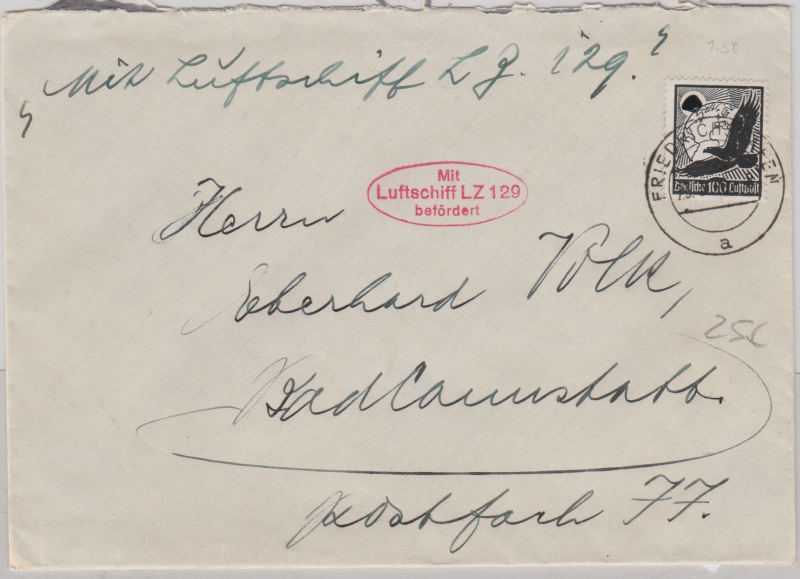 „Mit Luftschiff L Z. 129."
1.50
FRIED EN
a
Deutsche 100 Luftpost
Mit
Luftschiff LZ 129
befördert
Herrn
Eberhard Volk,
25£
Bad Cannstatt.
Postfach 77.